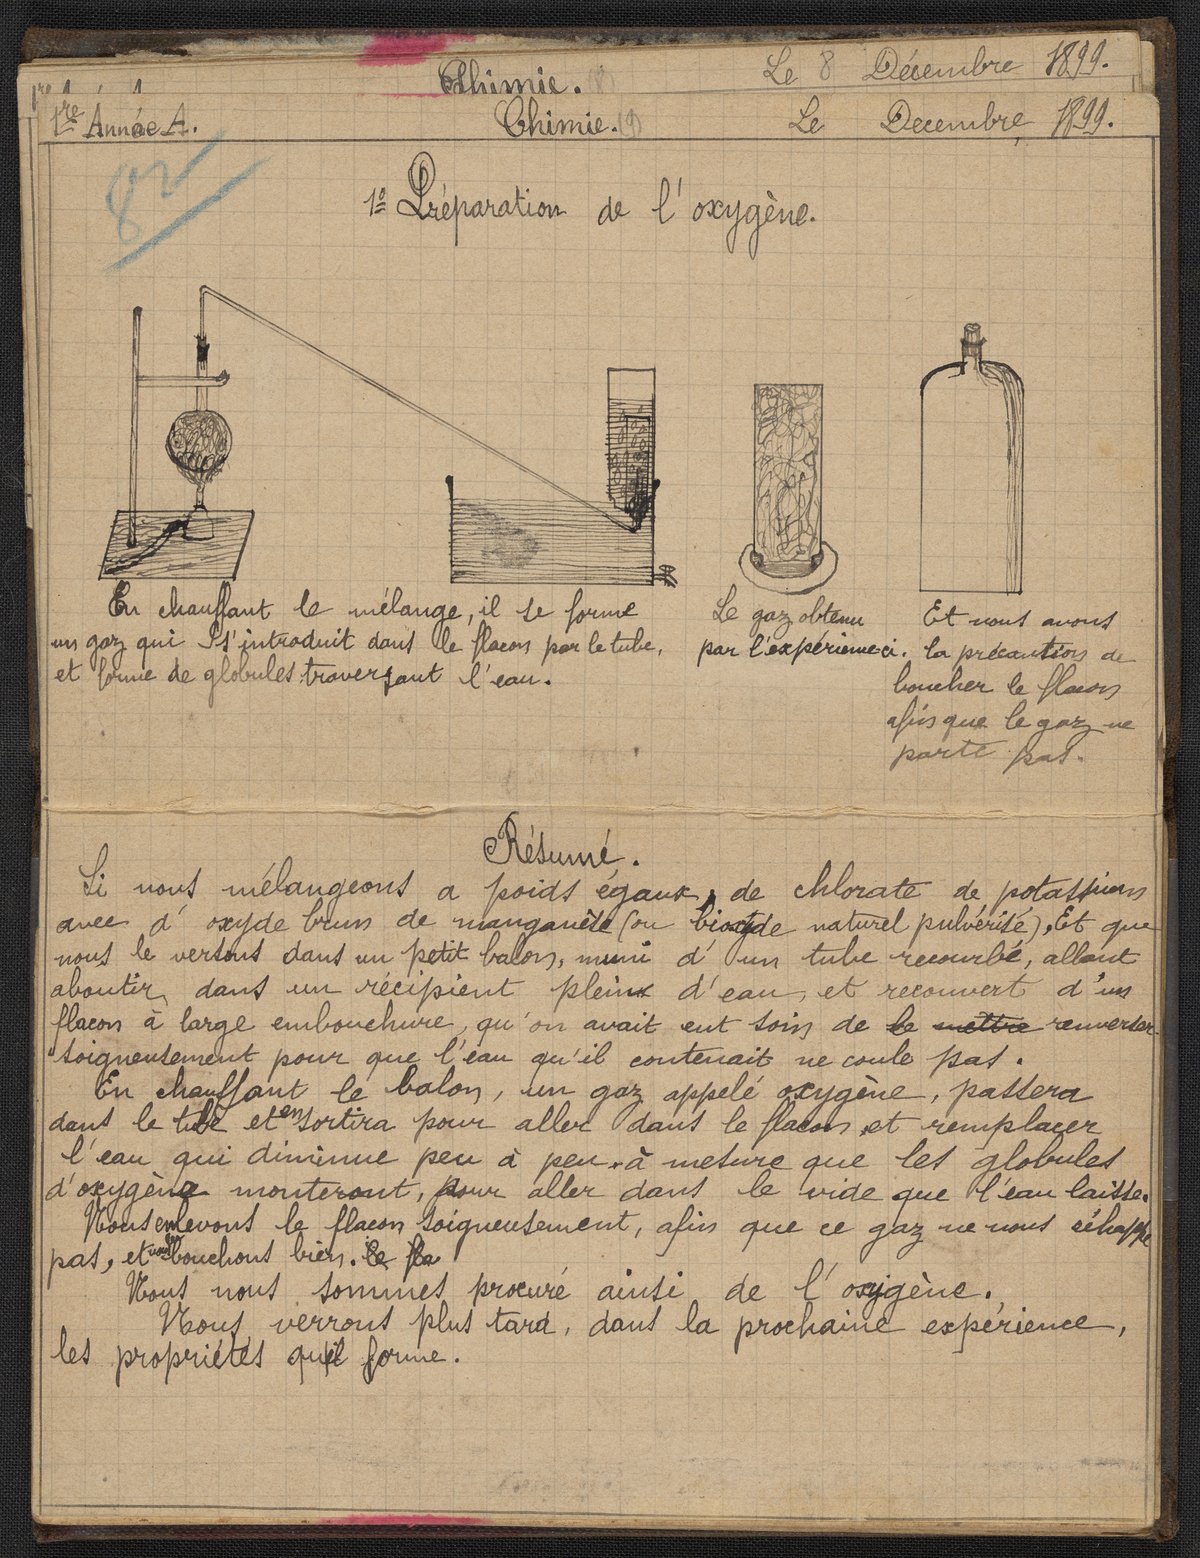 Chimie. (8) Le 8 Décembre 1899.
1re Année A. Chimie. (9) Le Decembre 1899.
82
1o Préparation de l'oxygène.
En chauffant le mélange, il se forme
un gaz qui s'introduit dans le flacon par le tube,
et forme de globules traversant l'eau.
Le gaz obtenu
par l'expérience ci.
Et nous avons
la précaution de
boucher le flacon
afin que le gaz ne
parte pas.
Résumé.
Si nous mélangeons a poids égaux, de chlorate de potassium
avec d' oxyde brun de manganèse (ou bioxyde naturel pulvérisé), Et que
nous le versons dans un petit balon, muni d' un tube recourbé, allant
aboutir dans un récipient plein d'eau, et recouvert d'un
flacon à large embouchure, qu'on avait eut soin de le mettre renverser
soigneusement pour que l'eau qu'il contenait ne coule pas.
En chauffant le balon, un gaz appelé oxygène, passera
dans le tube et en sortira pour aller dans le flacon et remplacer
l'eau qui diminue peu à peu à mesure que les globules
d'oxygène monteront, pour aller dans le vide que l'eau laisse.
Nous enlevons le flacon soigneusement, afin que ce gaz ne nous échappe
pas, et nous bouchons bien. le fla
Nous nous sommes procuré ainsi de l'oxigène.
Nous verrons plus tard, dans la prochaine expérience,
les propriétés qu'il forme.